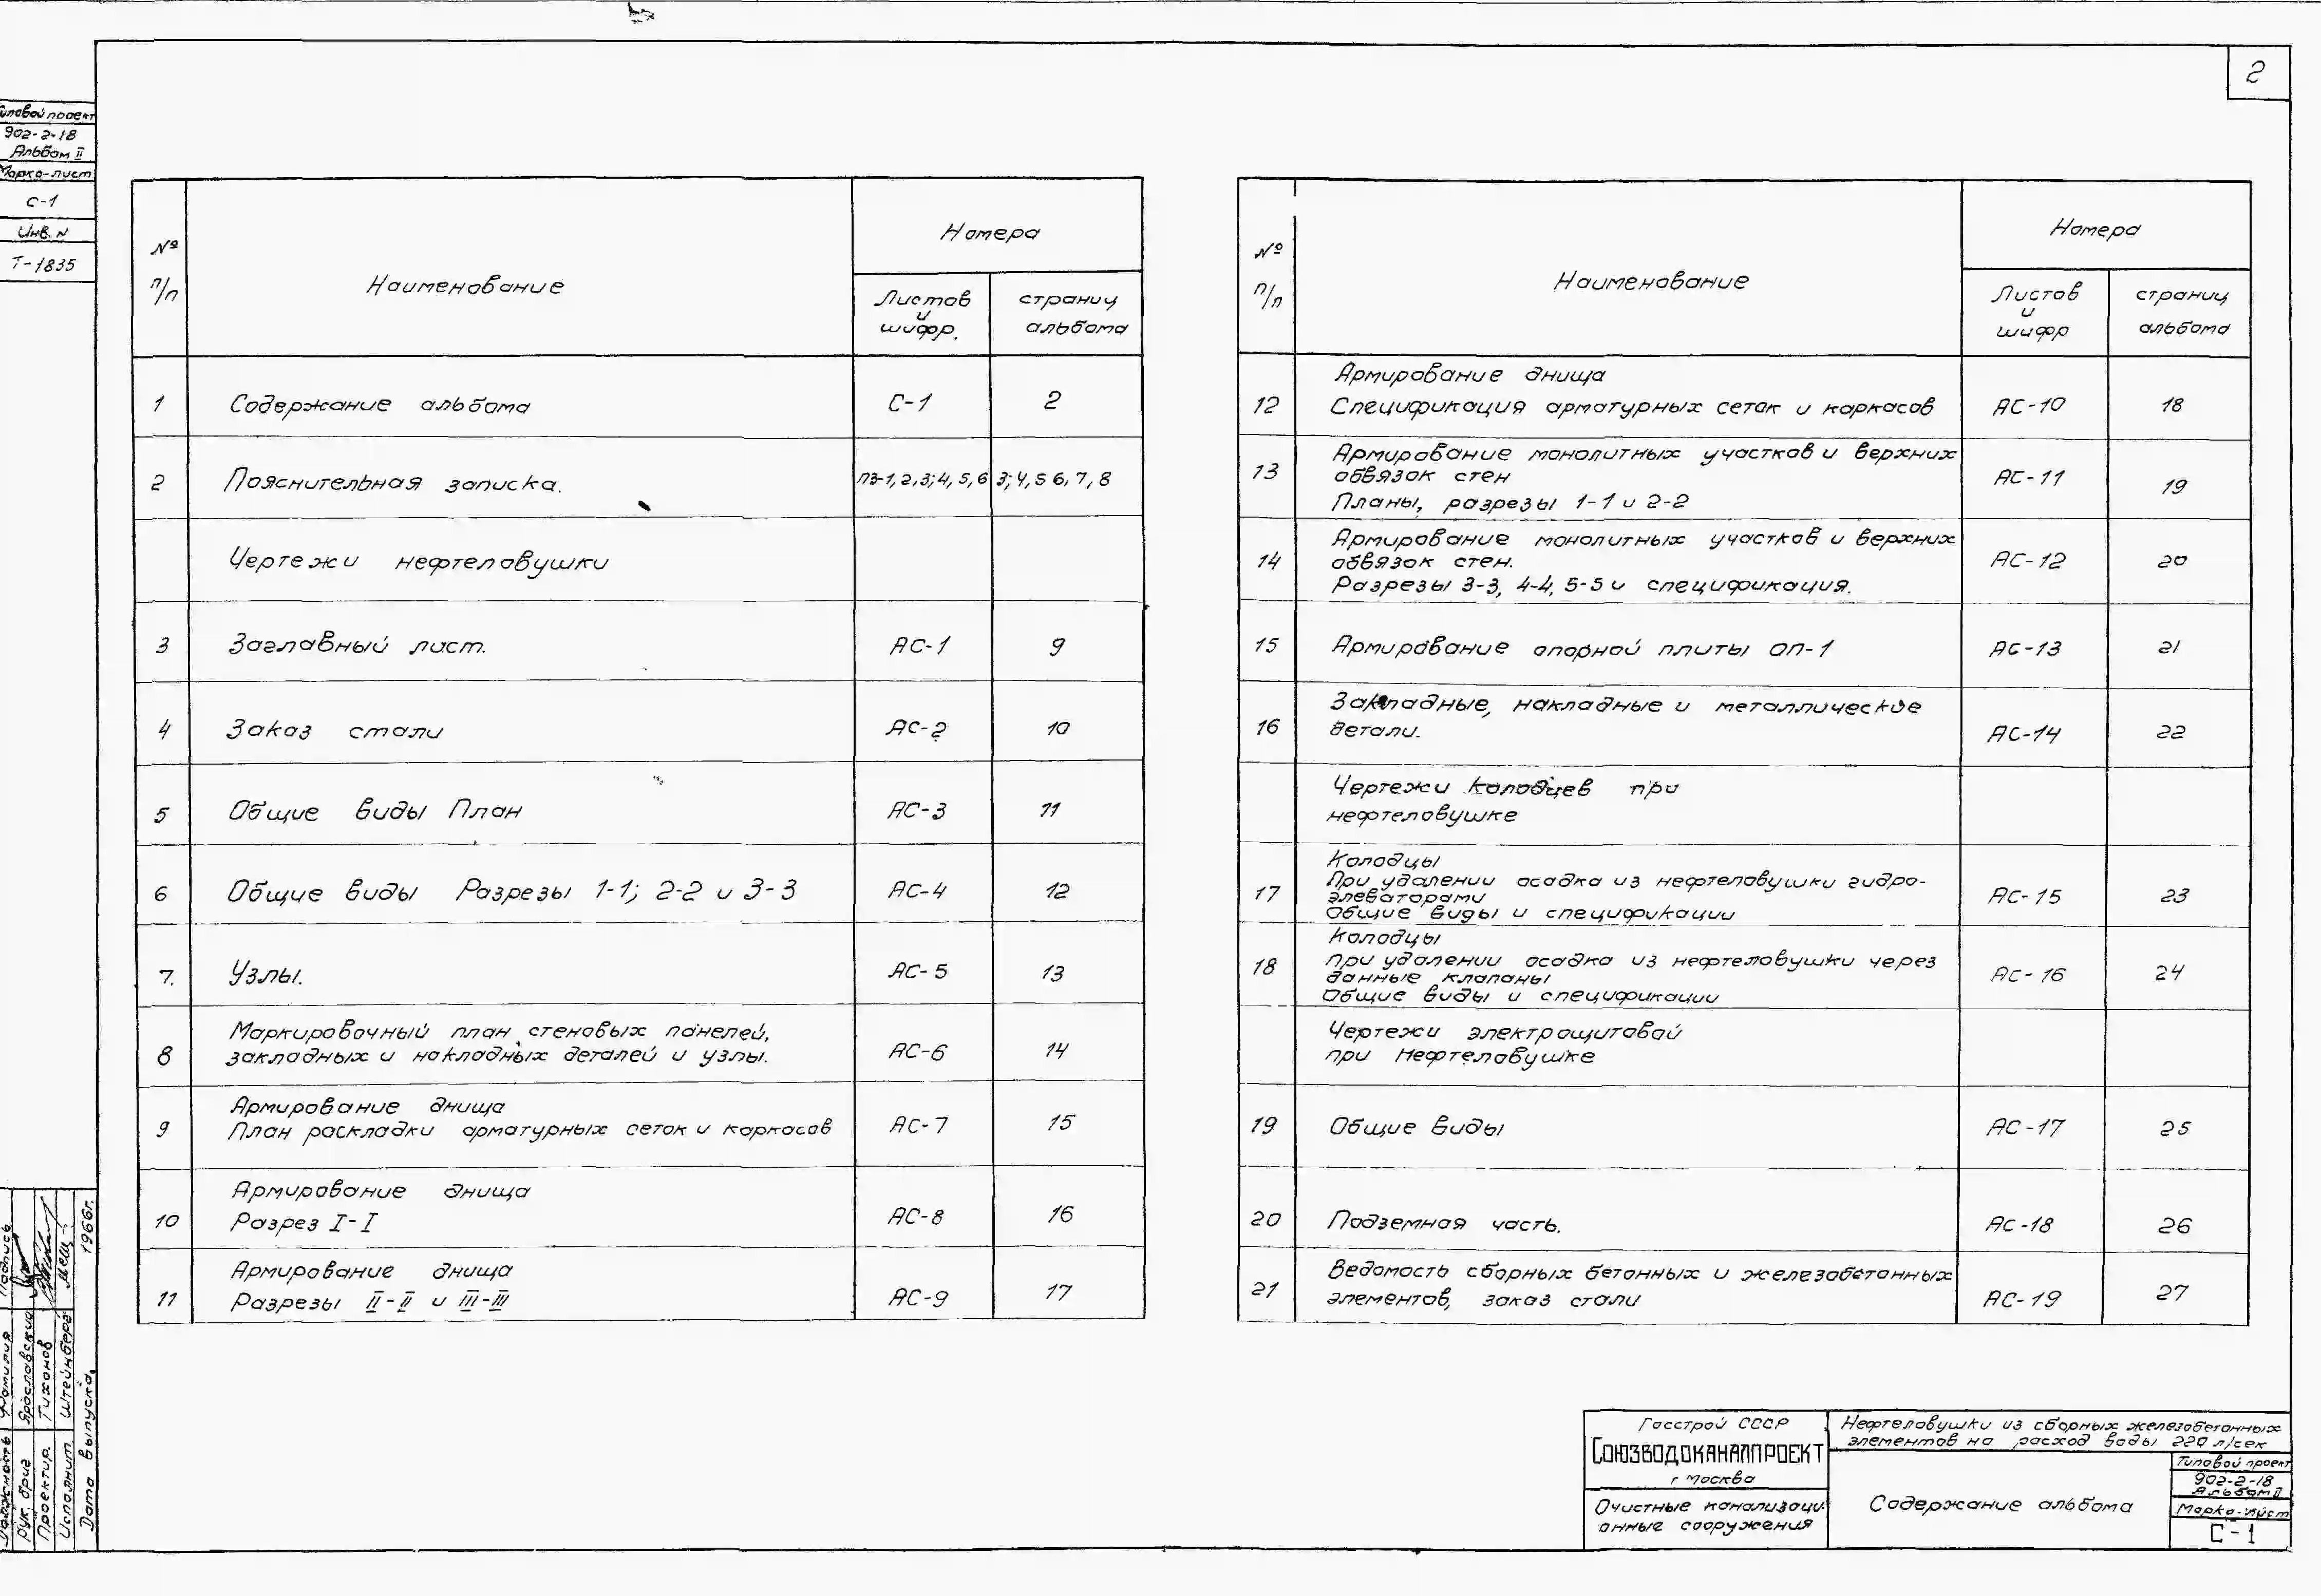 2
Типовой проект
902-2-18
Альбом II
Марка-лист
С-1
Инв. N
Т-1835
№ п/п
Наименование
Номера
Листов и шифр.
страниц альбома
1 Содержание альбома С-1 2
2 Пояснительная записка. ПЗ-1,2,3;4,5,6 3;4,5 6,7,8
Чертежи нефтеловушки
3 Заглавный лист. АС-1 9
4 Заказ стали АС-2 10
5 Общие виды План АС-3 11
6 Общие виды Разрезы 1-1; 2-2 и 3-3 АС-4 12
7. Узлы. АС-5 13
8 Маркировочный план стеновых панелей,
закладных и накладных деталей и узлы. АС-6 14
9 Армирование днища
План раскладки арматурных сеток и каркасов АС-7 15
10 Армирование днища
Разрез I-I АС-8 16
11 Армирование днища
Разрезы II-II и III-III АС-9 17
№ п/п
Наименование
Номера
Листов и шифр
страниц альбома
12 Армирование днища
Спецификация арматурных сеток и каркасов АС-10 18
13 Армирование монолитных участков и верхних
обвязок стен
Планы, разрезы 1-1 и 2-2 АС-11 19
14 Армирование монолитных участков и верхних
обвязок стен.
Разрезы 3-3, 4-4, 5-5 и спецификация. АС-12 20
15 Армирование опорной плиты ОП-1 АС-13 21
16 Закладные, накладные и металлические
детали. АС-14 22
Чертежи колодцев при
нефтеловушке
17 Колодцы
При удалении осадка из нефтеловушки гидро-
элеваторами
Общие виды и спецификации АС-15 23
18 Колодцы
при удалении осадка из нефтеловушки через
данные клапаны
Общие виды и спецификации АС-16 24
Чертежи электрощитовой
при Нефтеловушке
19 Общие виды АС-17 25
20 Подземная часть. АС-18 26
21 Ведомость сборных бетонных и железобетонных
элементов, заказ стали АС-19 27
Должность Фамилия Подпись
Рук. бриг Ярославский
Проектир. Тихонов
Исполнит. Штейнберг
Дата выпуска 1966г.
Госстрой СССР
Союзводоканалпроект
г Москва
Очистные канализаци-
онные сооружения
Нефтеловушки из сборных железобетонных
элементов на расход воды 220 л/сек
Содержание альбома
Типовой проект
902-2-18
Альбом II
Марка-лист
С-1